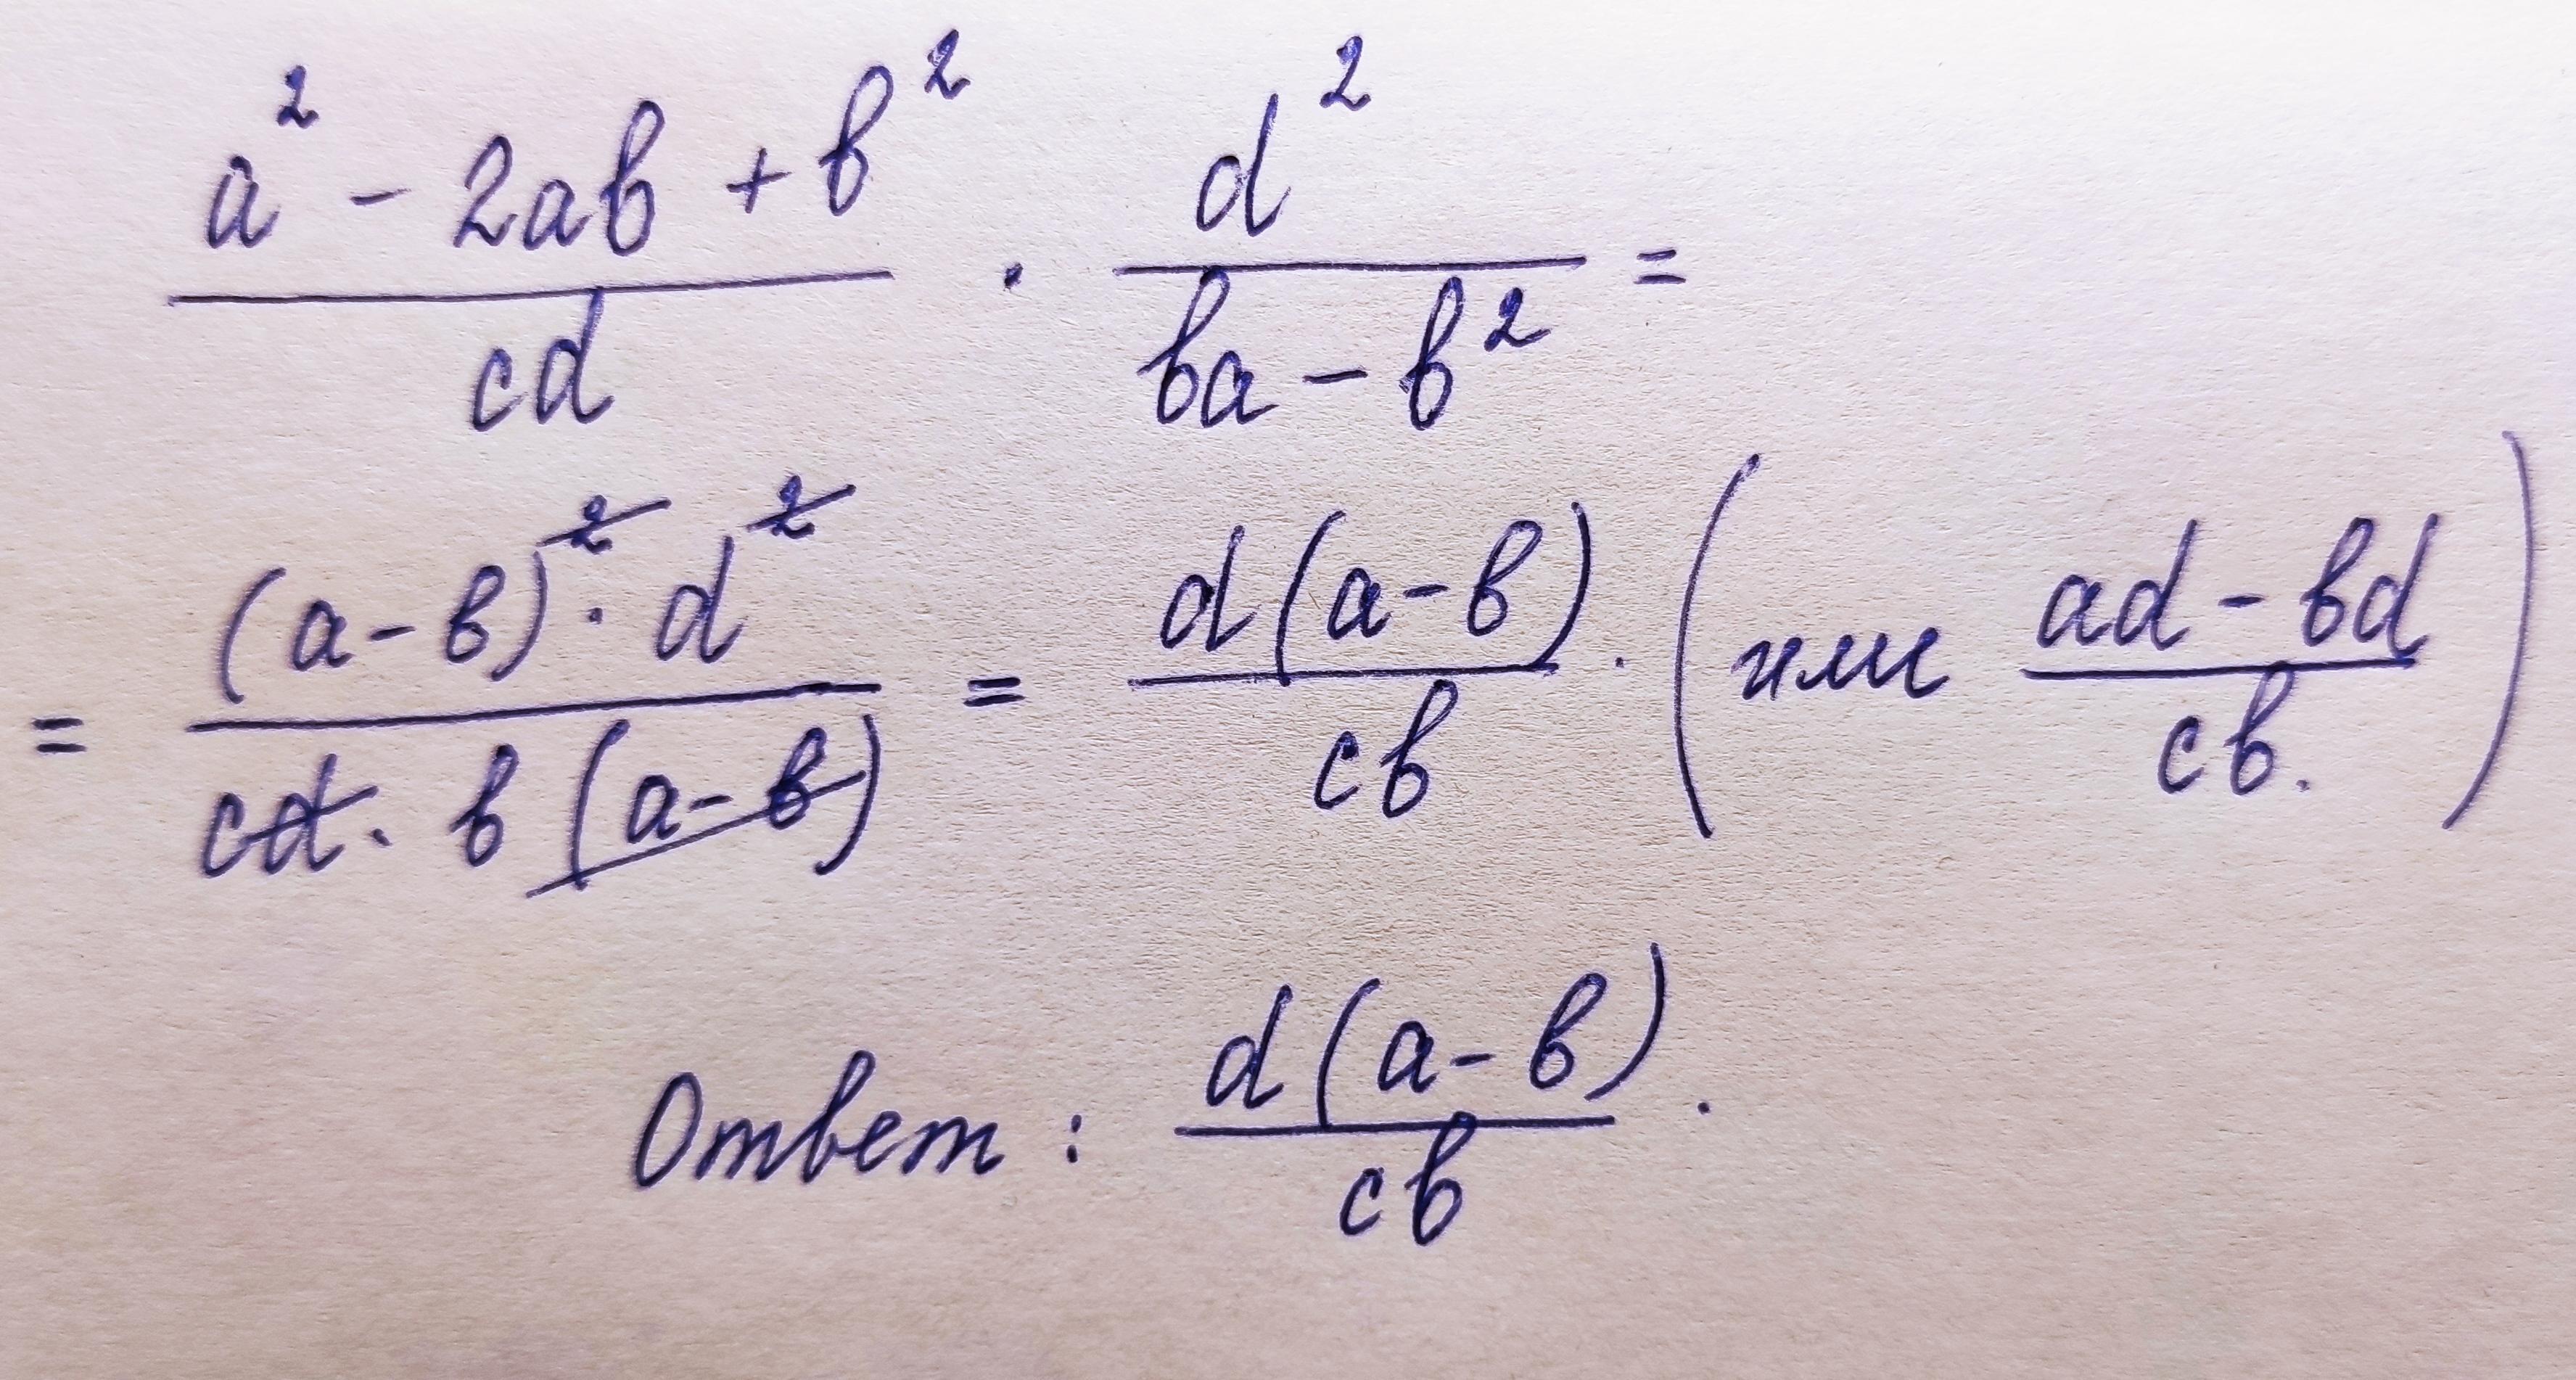 (a² - 2ab + b²)/(cd) · d²/(ba - b²) =
= ((a - b)² · d²)/(cd · b(a - b)) = (d(a - b))/(cb) . (или (ad - bd)/(cb.))
Ответ : (d(a - b))/(cb) .